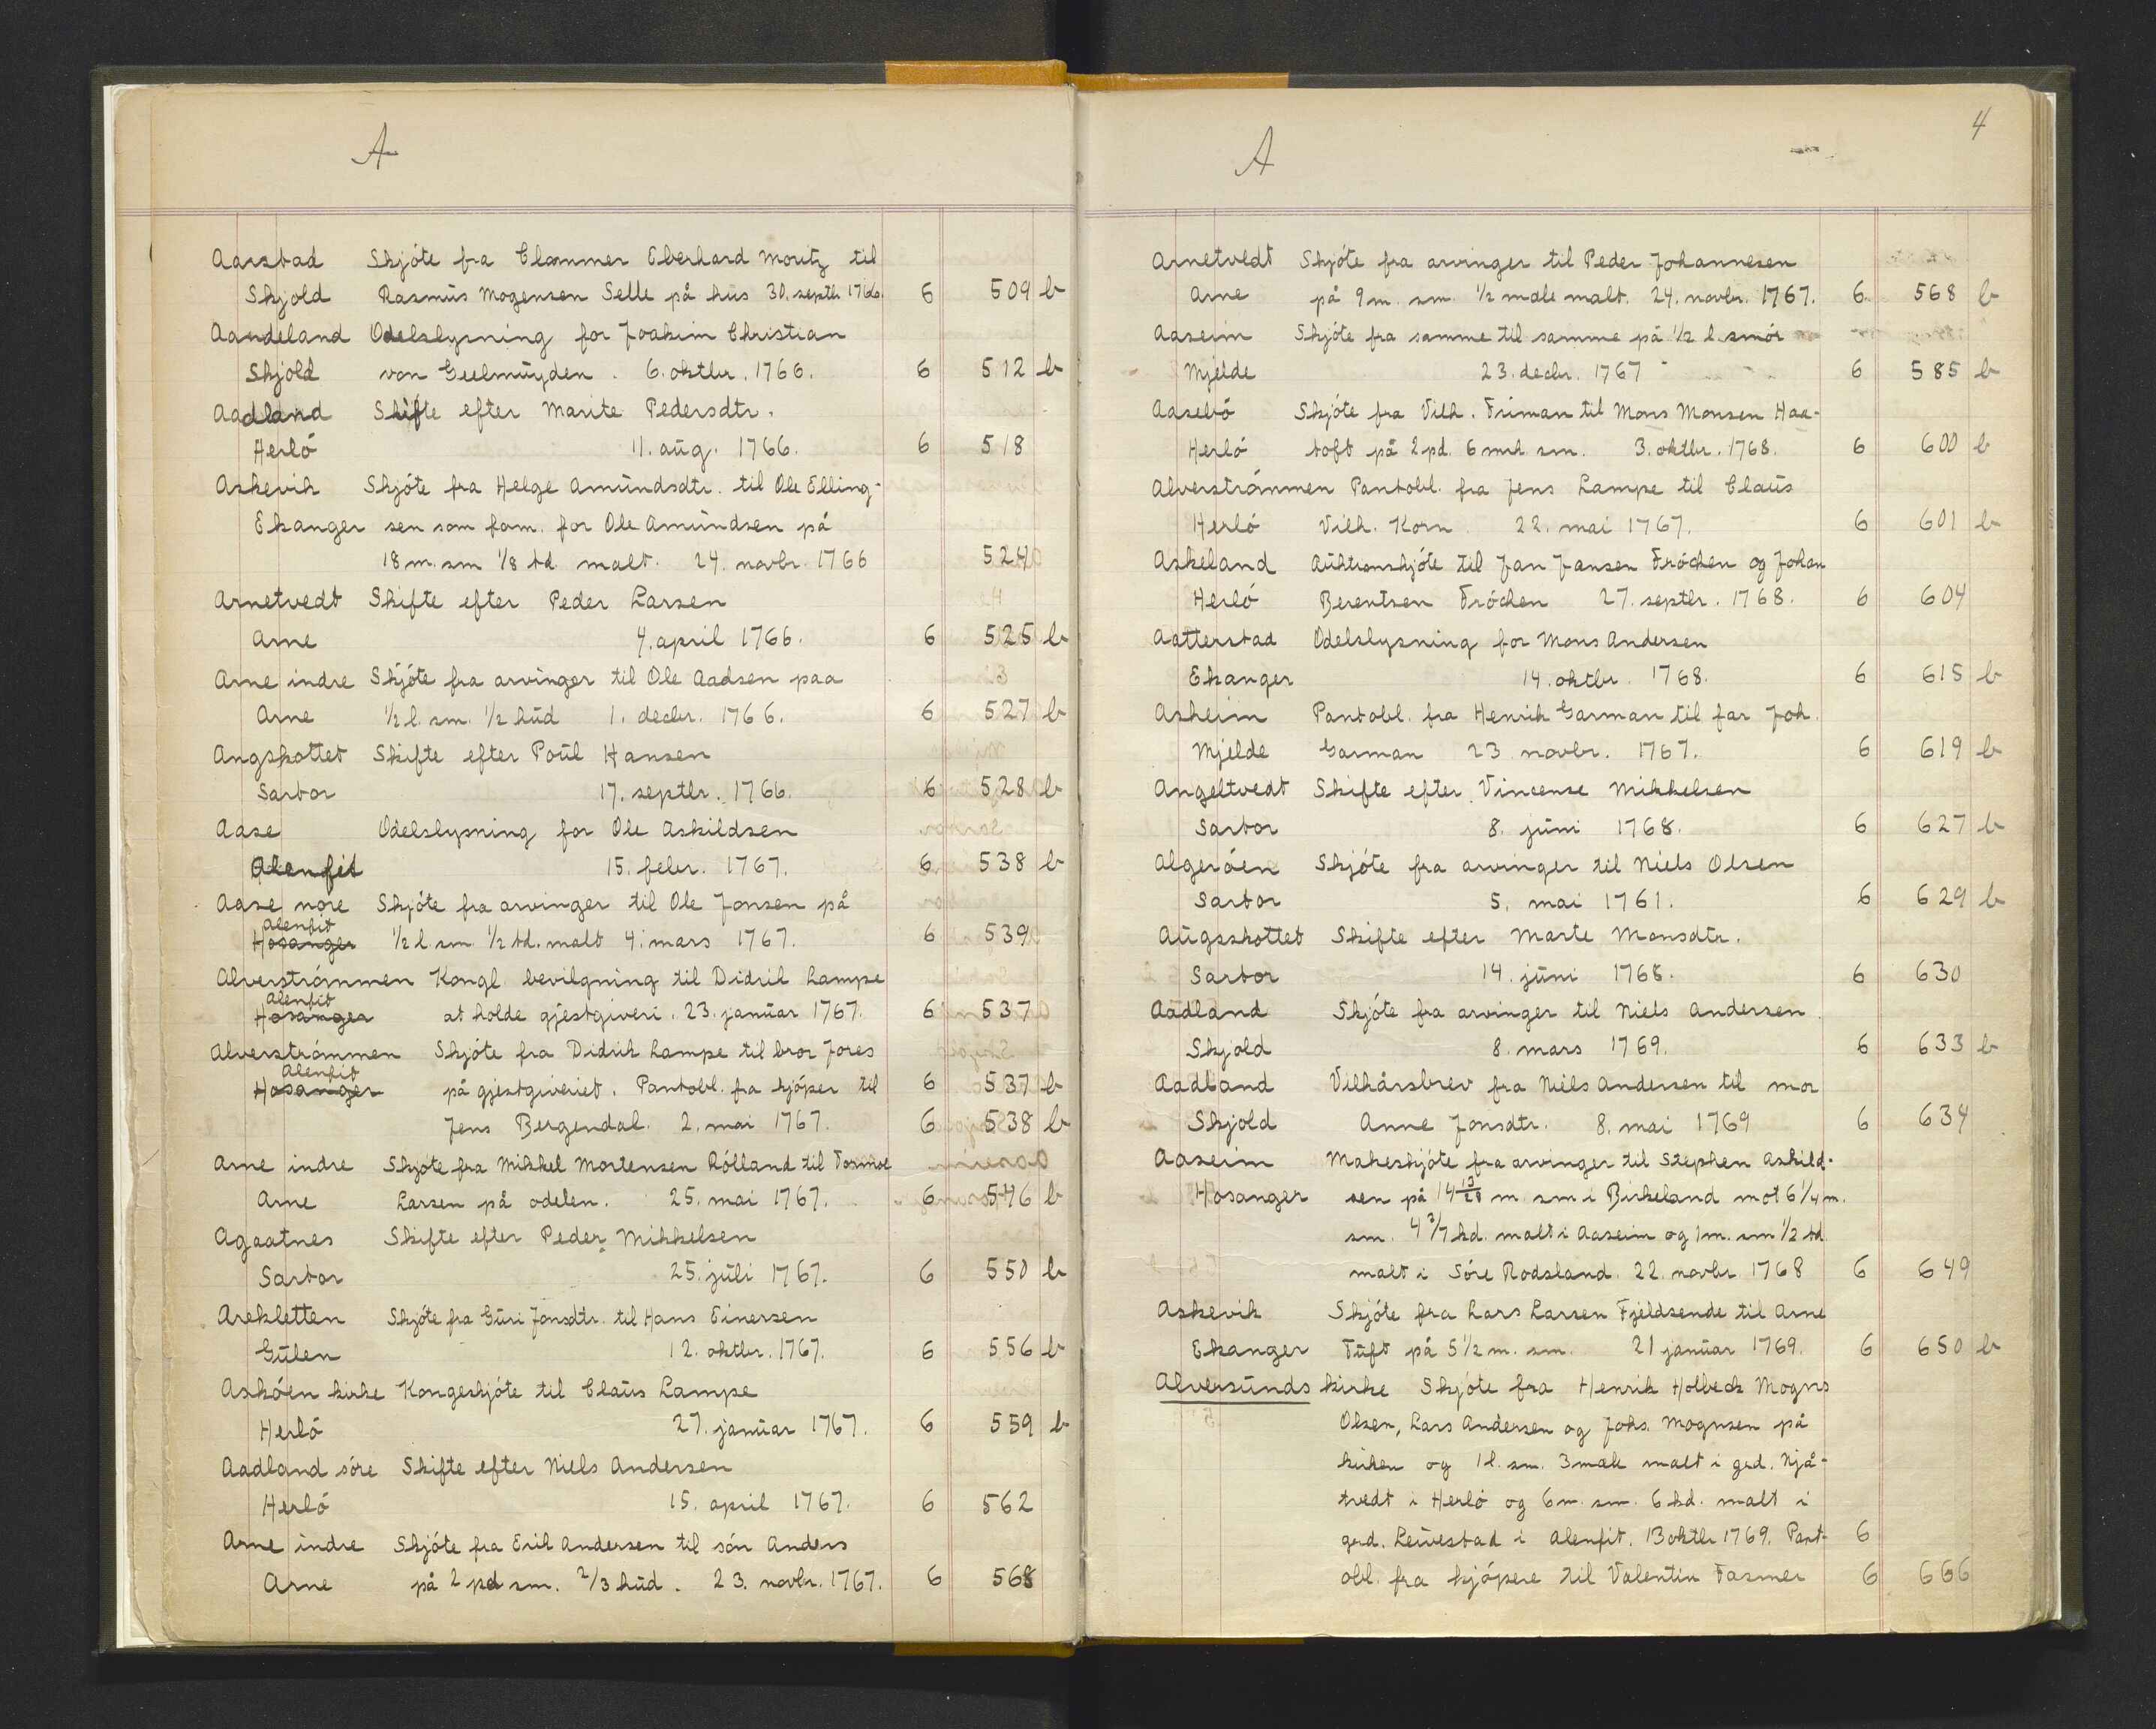 A
Aarstad Skjóte fra Clammer Eberhard Moritz til
Skjold Rasmus Mogensen Selle på hus 30. septbr. 1766. 6 509 b
Aandeland Odelslysning for Joakim Christian
Skjold von Geelmuyden. 6. oktbr. 1766. 6 512 b
Aadland Skifte efter Marite Pedersdtr.
Herló 11. aug. 1766. 6 518
Askevik Skjóte fra Helge Amundsdtr. til Ole Elling-
Ekanger sen som form. for Ole Amundsen på
18 m. sm 1/8 td. malt. 24. novbr. 1766 524
Arnetvedt Skifte efter Peder Larsen
Arne 4. april 1766. 6 525 b
Arne indre Skjóte fra arvinger til Ole Aadsen paa
Arne 1/2 l. sm. 1/2 hud 1. decbr. 1766. 6 527 b
Angskottet Skifte efter Poul Hansen
Sartor 17. septbr. 1766. 6 528 b
Aase Odelslysning for Ole Askildsen
Alenfit 15. febr. 1767. 6 538 b
Aase nóre Skjóte fra arvinger til Ole Jonsen på
Alenfit
Hosanger 1/2 l. sm. 1/2 td. malt 4. mars 1767. 6 539
Alverstrómmen Kongl. bevilgning til Didrik Lampe
Alenfit
Hosanger at holde gjestgiveri. 23. januar 1767. 6 537
Alverstrómmen Skjóte fra Didrik Lampe til bror Jores
Alenfit
Hosanger på gjestgiveriet. Pantobl. fra kjóper til 6 537 b
Jens Bergendal. 2. mai 1767. 6 538 b
Arne indre Skjóte fra Mikkel Mortensen Rólland til Tosmoe
Arne Larsen på odelen. 25. mai 1767. 6 546 b
Agaatnes Skifte efter Peder Mikkelsen
Sartor 25. juli 1767. 6 550 b
Arekletten Skjóte fra Guri Jonsdtr. til Hans Einersen
Gulen 12. oktbr. 1767. 6 556 b
Askóen kirke Kongeskjóte til Claus Lampe
Herló 27. januar 1767. 6 559 b
Aadland sóre Skifte efter Niels Andersen
Herló 15. april 1767. 6 562
Arne indre Skjóte fra Erik Andersen til són Anders
Arne på 2 pd sm. 2/3 hud. 23. novbr. 1767. 6 568
4
A
Arnetvedt Skjóte fra arvinger til Peder Johannesen
Arne på 9 m. sm. 1/2 mæle malt. 24. novbr. 1767. 6. 568 b
Aaseim Skjóte fra samme til samme på 1/2 l. smór
Mjelde 23. decbr. 1767 6 585 b
Aasebó Skjóte fra Vilh. Friman til Mons Monsen Haa-
Herló toft på 2 pd. 6 mrk. sm. 3. oktbr. 1768. 6 600 b
Alverstrómmen Pantobl. fra Jens Lampe til Claus
Herló Vilh. Korn 22. mai 1767. 6 601 b
Askeland Auktionskjóte til Jan Jansen Fróchen og Johan
Herló Berentsen Fróchen 27. septbr. 1768. 6 604
Aatterstad Odelslysning for Mons Andersen
Ekanger 14. oktbr. 1768. 6 615 b
Askeim Pantobl. fra Henrik Garman til far Joh.
Mjelde Garman 23 novbr. 1767. 6 619 b
Angeltvedt Skifte efter Vincense Mikkelsen
Sartor 8. juni 1768. 6 627 b
Algeróen Skjóte fra arvinger til Niels Olsen
Sartor 5. mai 1761. 6 629 b
Augskottet Skifte efter Marte Monsdtr.
Sartor 14. juni 1768. 6 630
Aadland Skjóte fra arvinger til Niels Andersen
Skjold 8. mars 1769. 6 633 b
Aadland Vilkårsbrev fra Niels Andersen til mor
Skjold Anne Jonsdtr. 8. mai 1769 6 634
Aaseim Makeskjóte fra arvinger til Stephen Askild-
Hosanger sen på 14 13/28 m. sm i Birkeland mot 6 1/4 m.
sm. 4 2/7 kd. malt i Aaseim og 1 m. sm 1/2 td
malt i Sóre Rodsland. 22. novbr. 1768 6 649
Askevik Skjóte fra Lars Larsen Fjeldsende til Arne
Ekanger Tuft på 5 1/2 m. sm. 21 januar 1769. 6 650 b
Alversunds kirke Skjóte fra Henrik Holbeck Mogns
Olsen, Lars Andersen og Johs. Mognsen på
kirken og 1 l. sm. 3 mæle malt i grd. Njå-
tvedt i Herló og 6 m. sm. 6 kd. malt i
grd. Leivestad i Alenfit. 13 oktbr 1769. Pant- 6
obl. fra kjópere til Valentin Fasmer 6 666